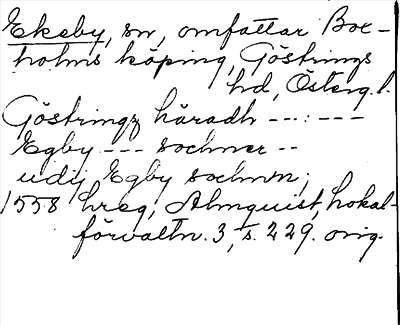 Ekeby, sn, omfattar Box-
holms köping, Göstrings
hd, Österg.l.
Göstringz häradh ---:---
Egby --- sochner --
udij Egby sochnn;
1558 hreg; Almquist, Lokal-
förvaltn. 3, s. 229. orig.